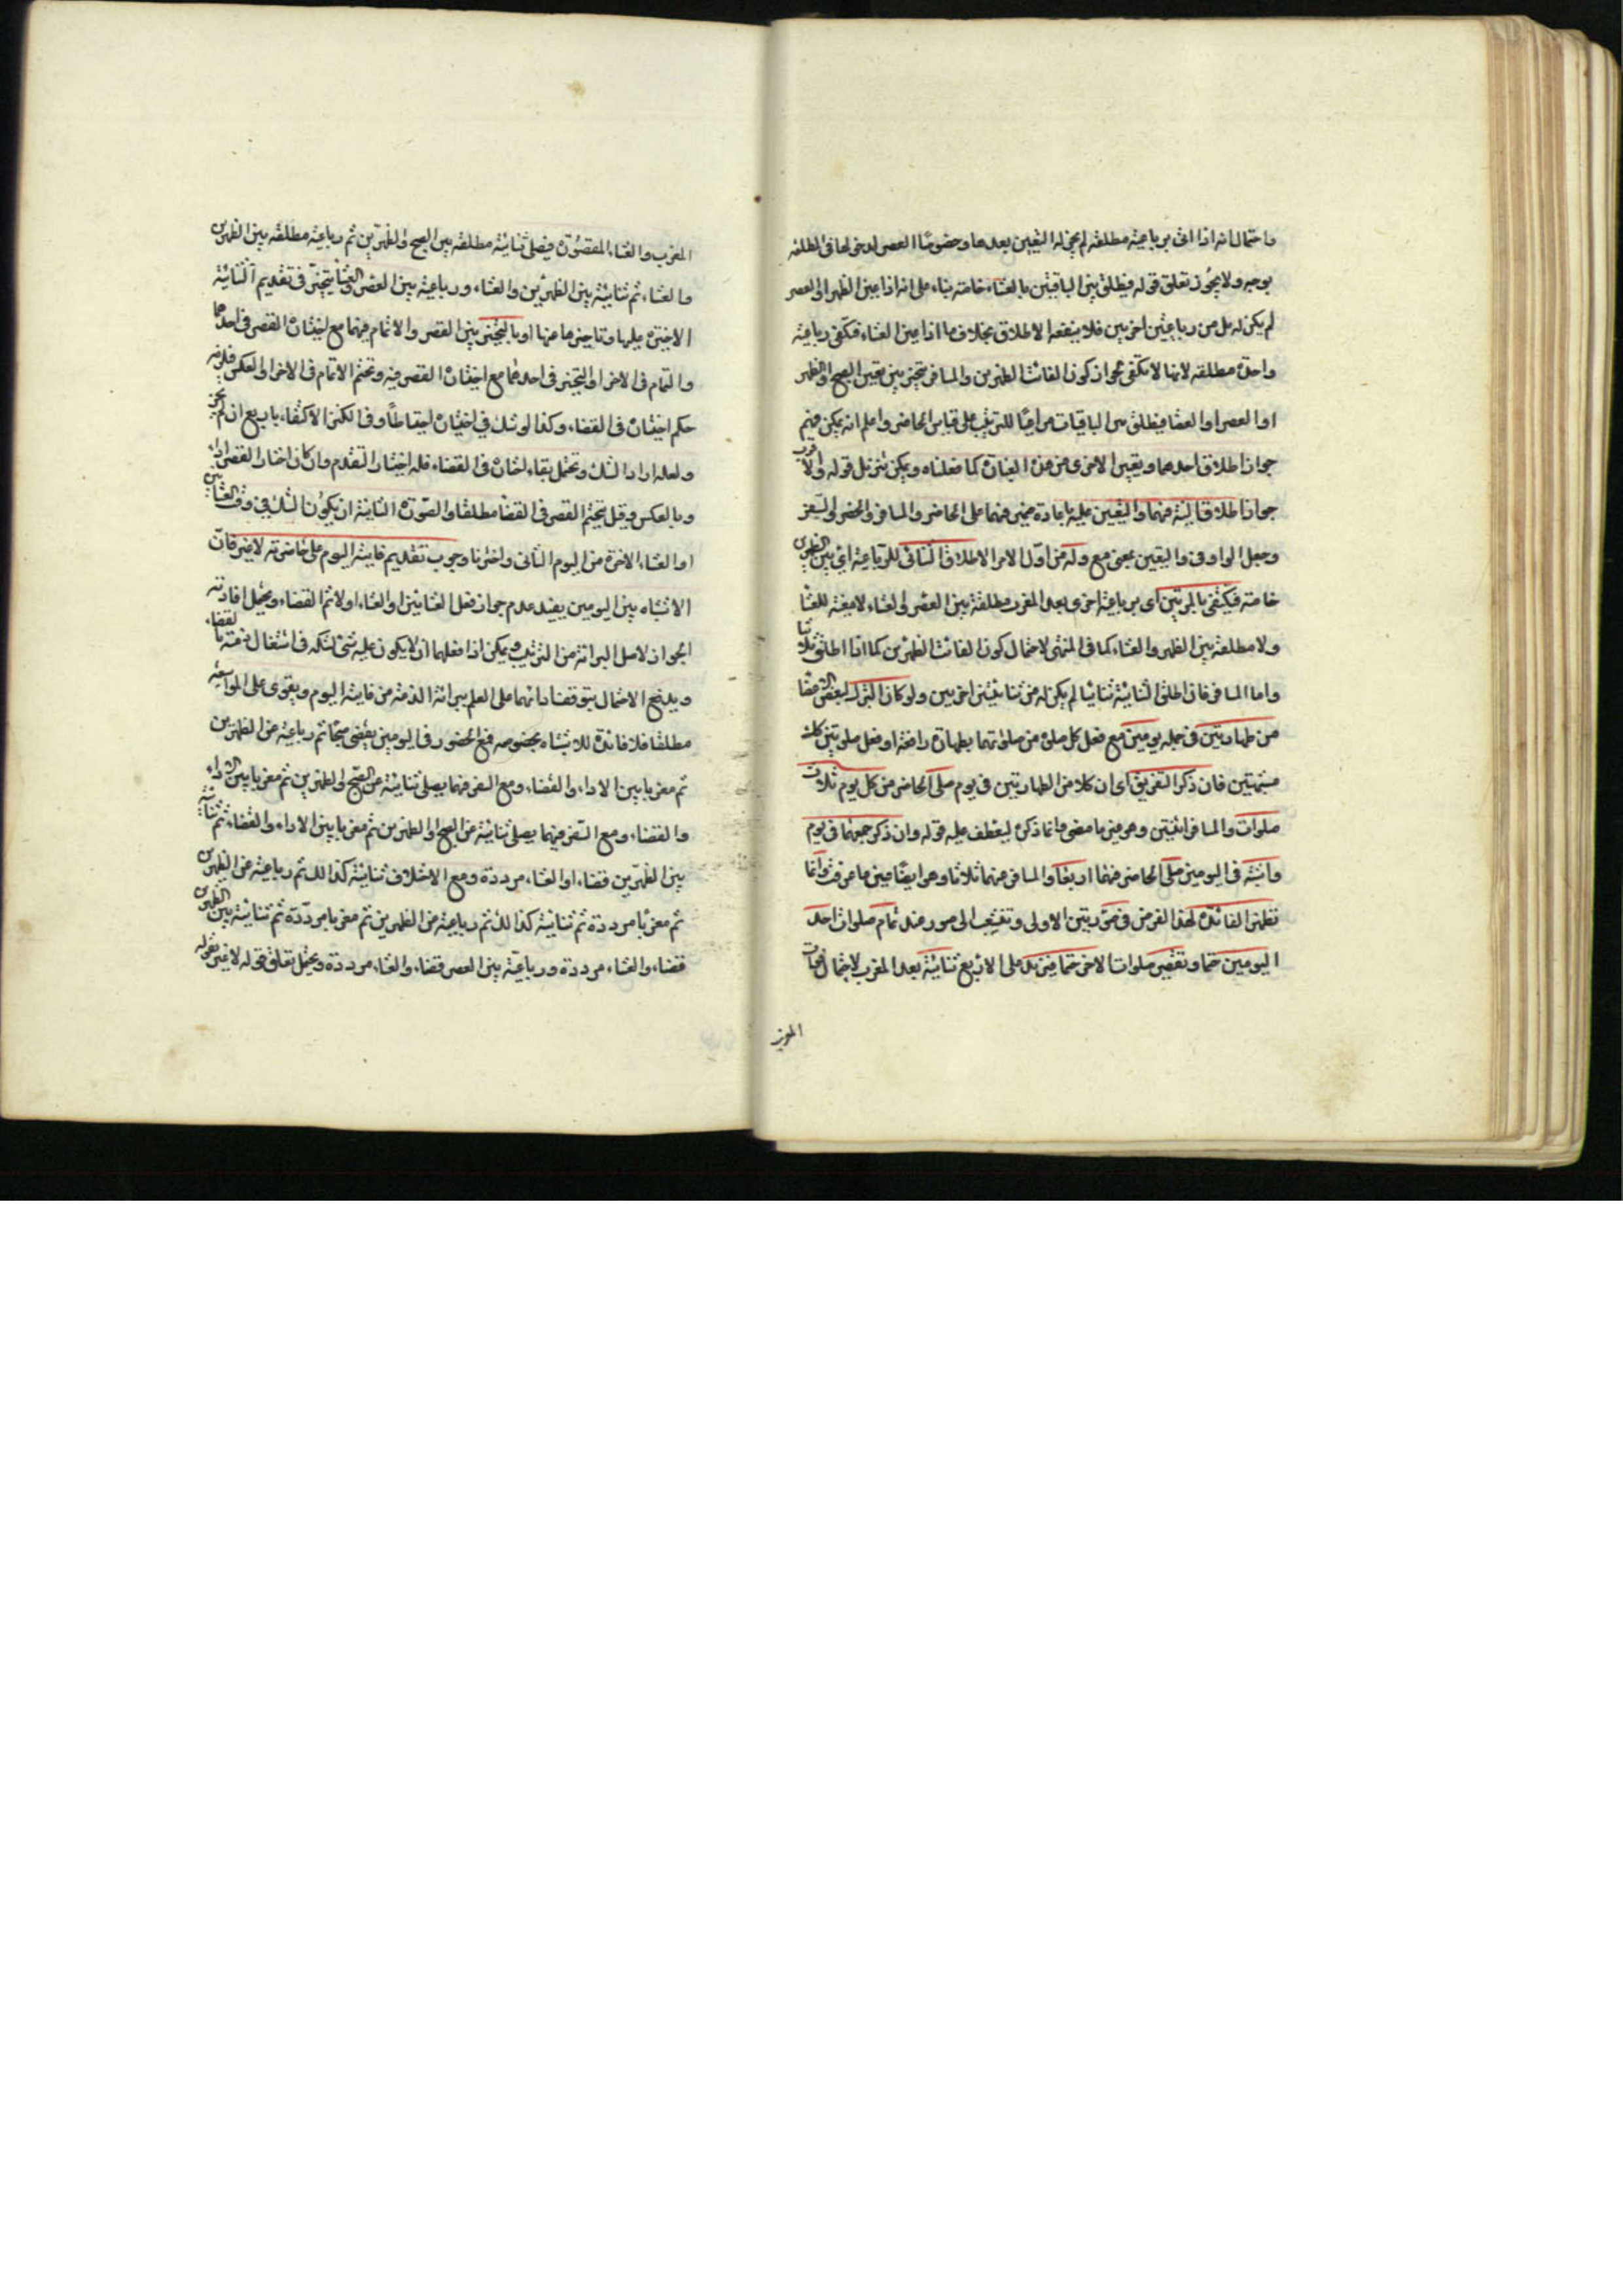 واحتمال انه اذا اتى برباعية مطلقة لم يجز له التعيين بعدها وخصوصا العصر لدخولها في المطلقة
بوجه ولا يجوز تعلق قوله فيطلق بين الباقيتين بالعشاء خاصة بناء على انه اذا عين الظهر او العصر
لم يكن له بد من رباعيتين اخريين فلا ينفعه الاطلاق بخلاف ما اذا عين العشاء فتكفي رباعية
واحدة مطلقة لانها لا تكفي لجواز كون الفائت الظهرين والمسافر يتخير بين تعيين الصبح او الظهر
او العصر او العشا فيطلق بين الباقيات مراعيا للترتيب على قياس الحاضر واعلم انه يمكن فهم
جواز اطلاق احدهما وتعيين الاخرى من هذه العبارة كما فعلناه ويمكن تنزيل قوله والاقرب
جواز اطلاق النية فيهما والتعيين عليه باعادة ضمير فيهما على الحاضر والمسافر والحضر والسفر
وجعل الواو في والتعيين بمعنى مع وله من اول الامر الاطلاق الثنائي للرباعية اي بين الظهرين
خاصة فيكتفي بالمرتين اي برباعية اخرى بعد المغرب مطلقة بين العصر والعشاء لا معينة للعشا
ولا مطلقة بين الظهر والعشاء كما في المنتهى لاحتمال كون الفائت الظهرين كما اذا اطلق ثلاثيا
واما المسافر فان اطلق الثنائية ثنائيا لم يكن له من ثنائيتين اخريين ولو كان الترك لبعض الاعضا
من طهارتين في جملة يومين مع فعل كل صلوة من صلواتهما بطهارة رافعة او فعل صلوتين كلت
مشبهتين فان ذكر التفريق اي ان كلا من الطهارتين في يوم صلى الحاضر من كل يوم ثلاث
صلوات والمسافر اثنتين وهو مبين بما مضى وانما ذكره ليعطف عليه قوله وان ذكر جمعهما في يوم
واشتبه في اليومين صلى الحاضر منهما اربعا والمسافر منهما ثلاثا وهو ايضا مبين ما عرفت وانما
تظهر الفائدة لهذا الفرض في صورتين الاولى وتشعب الى صور عند تمام صلوات احد
اليومين حتما وتقصير صلوات الاخر حتما فيزيد على الاربع ثنائية بعد المغرب لاحتمال فوات
المغرب
المغرب والعشاء المقصورة فيصلي ثنائية مطلقة بين الصبح والظهرين ثم رباعية مطلقة بين الظهرين
والعشاء ثم ثنائية بين الظهرين والعشاء ورباعية بين العصر والعشا يتخير في تقديم الثنائية
الاخيرة عليها وتاخيرها عنها او بالتخيير بين القصر والاتمام فيهما مع اختياره القصر في احدهما
والتمام في الاخر او التخيير في احدهما مع اختياره القصر فيه وتحتم الاتمام في الاخر او العكس فلزمه
حكم اختياره في القضاء وكذا لو شك في اختياره احتياطا وفي الكنز الاكتفاء باربع ان لم يختر
ولعله اراد الشك ويحتمل بقاء اختياره في القضاء فله اختيار التقدم وان كان اختار القصر اداء
وبالعكس وقيل بتحتم القصر في القضا مطلقا والصورة الثانية ان يكون الشك في وقت العشائين
او العشاء الاخرة من اليوم الثاني واخترنا وجوب تقديم فايتة اليوم على حاضرته لا غير فان
الاشتباه بين اليومين يفيد عدم جواز فعل العشائين او العشاء اولا ثم القضاء ويحتمل افادته
الجواز لاصل البراءة من الترتيب ويمكن اذا فعلهما ان لا يكون عليه شئ لشكه في اشتغال ذمته بالقضاء
ويدفع الاحتمال بتوقف ادائهما على العلم ببراءة الذمة من فايتة اليوم ويقوى على المواسعة
مطلقا فلا فائدة للاشتباه بخصوصه فمع الحضور في اليومين يقضي صبحا ثم رباعية عن الظهرين
ثم مغربا بين الاداء والقضاء ومع السفر فيهما يصلي ثنائية عن الصبح والظهرين ثم مغربا بين الاداء
والقضاء ومع السفر فيهما يصلي ثنائية عن الصبح والظهرين ثم مغربا بين الاداء والقضاء ثم ثنائية
بين الظهرين قضاء او العشاء مرددة ومع الاختلاف ثنائية كذلك ثم رباعية عن الظهرين
ثم مغربا مرددة ثم ثنائية كذلك ثم رباعية عن الظهرين ثم مغربا مرددة ثم ثنائية بين الظهرين
قضاء والعشاء مرددة ورباعية بين العصر قضاء والعشاء مرددة ويحتمل تعلق قوله لا غير بقوله